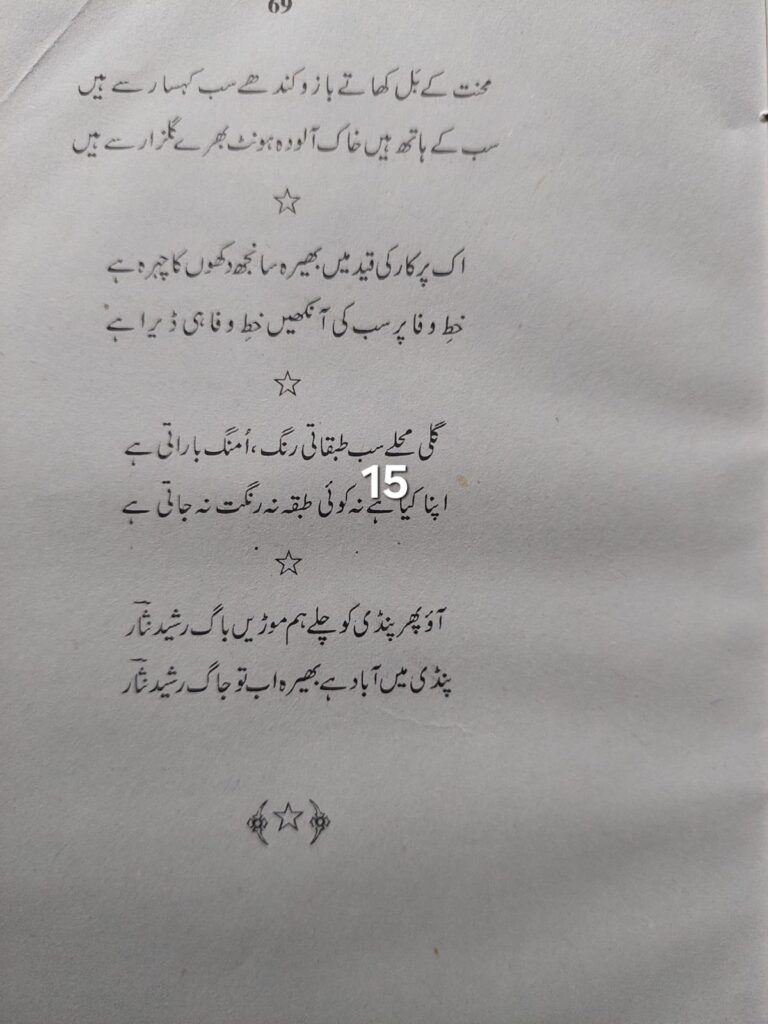 69
محنت کے بَل کھاتے بازو کندھے سب کہسار سے ہیں
سب کے ہاتھ ہیں خاک آلودہ ہونٹ بھرے گلزار سے ہیں
☆
اک پرکار کی قید میں بھیرہ سانجھ دکھوں کا چہرہ ہے
خطِ وفا پر سب کی آنکھیں خطِ وفا ہی ڈیرا ہے
☆
گلی محلے سب طبقاتی رنگ، اُمنگ باراتی ہے
15
اپنا کیا ہے نہ کوئی طبقہ نہ رنگت نہ جاتی ہے
☆
آؤ پھر پنڈی کو چلے ہم موڑیں باگ رشید نثارؔ
پنڈی میں آباد ہے بھیرہ اب تو جاگ رشید نثارؔ
☆